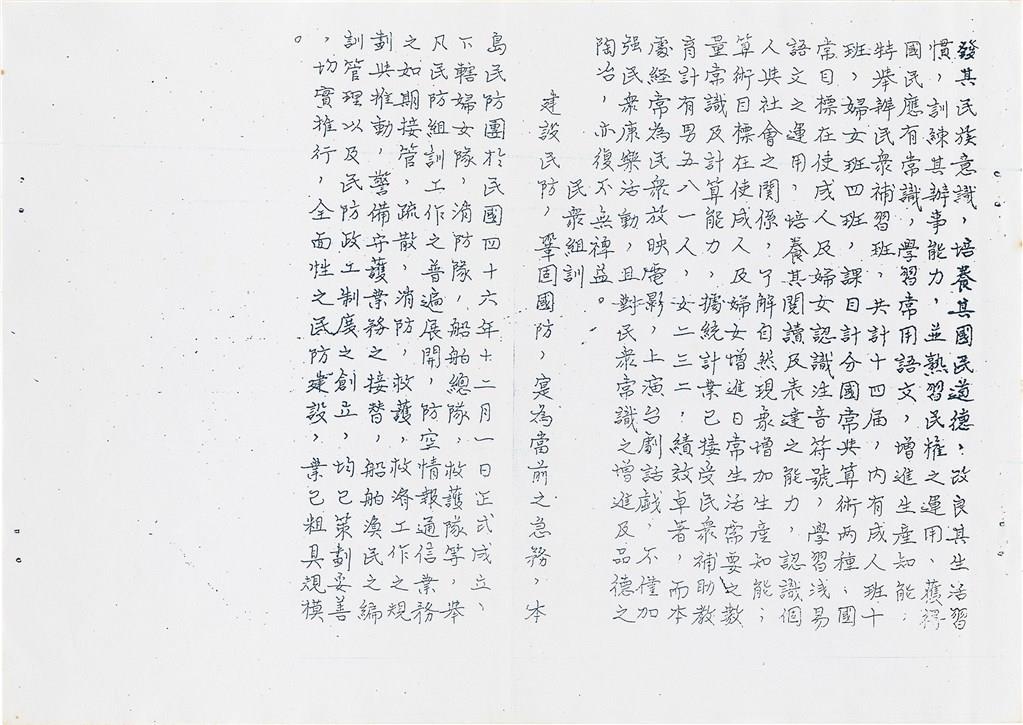 發其民族意識，培養其國民道德，改良其生活習
慣，訓練其辦事能力，並熟習民權之運用、獲得
國民應有常識，學習常用語文，增進生產知能，
特舉辦民衆補習班、共計十四届，內有成人班十
班，婦女班四班，課目計分國常與算術两種、國
常目標在使成人及婦女認識注音符號，學習浅易
語文之運用，培養其閱讀及表達之能力，認識個
人與社會之関係，了解自然現象增加生產知能；
算術目標在使成人及婦女增進日常生活需要之數
量常識及計算能力，據統計業已接受民衆補助教
育計有男五八一人，女二三二，績效卓著，而本
處経常為民衆放映電影，上演台劇話戲，不僅加
强民衆康樂活動，且對民衆常識之增進及品德之
陶冶，亦復不無裨益。
民衆組訓
建設民防，鞏固國防，寔為當前之急務，本
島民防團於民國四十六年十二月一日正式成立、
下轄婦女隊，消防隊，船舶總隊，救護隊等，舉
凡民防組訓工作之普遍展開，防空情報通信業務
之如期接管，疏散，消防，救護，救濟工作之規
劃與推動，警備守護業務之接替，船舶漁民之編
訓管理以及民防政工制度之創立，均已策劃妥善
，切實推行，全面性之民防建設，業已粗具規模
。